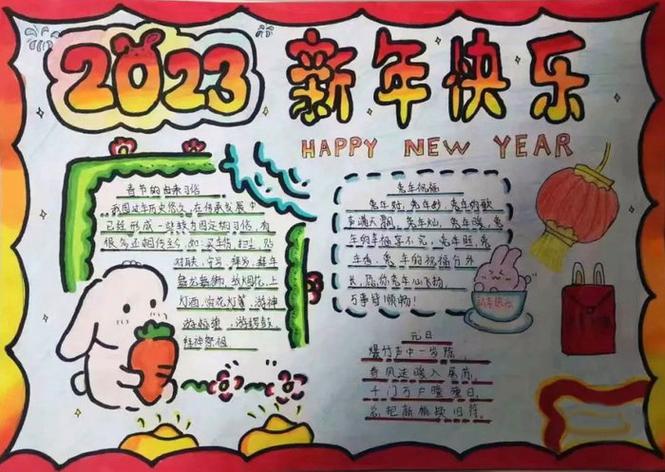 2023 新年快乐
HAPPY NEW YEAR
春节的由来习俗
我国过年历史悠久,在传承发展中
已经形成一些较为固定的习俗,有
很多还相传至今,如买年货、扫尘、贴
对联、守岁、拜岁、拜年
舞龙舞狮、放烟花、上
灯酒、游神
拜神祭祖
兔年祝福
兔年到,兔年妙,兔年的歌
声满天飘,兔年灿,兔年暖,兔
年的幸福享不完,兔年旺,兔
年的祝福分外
长,愿你兔年心飞扬
万事皆顺畅!
新年快乐
元日
爆竹声中一岁除,
春风送暖入屠苏,
千门万户曈曈日,
总把新桃换旧符。